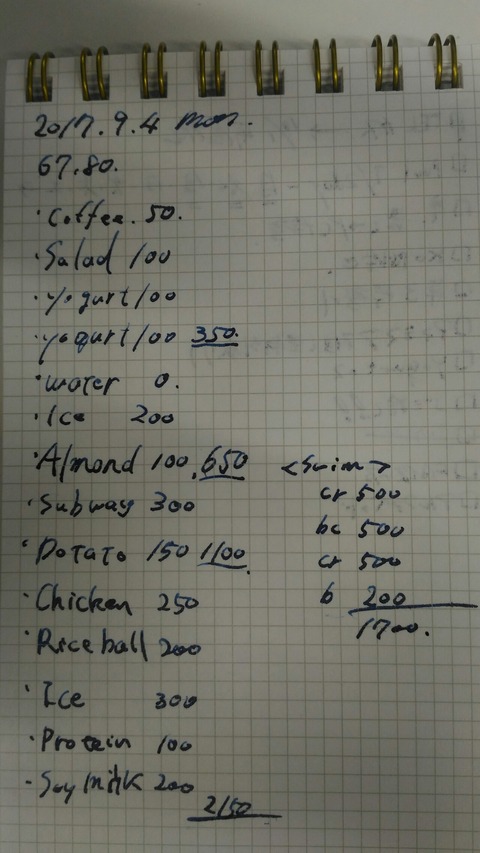 2017.9.4 mon.
67.80.
・Coffee. 50.
・Salad 100
・yogurt 100
・yogurt 100 350.
・water 0.
・Ice 200
・Almond 100. 650
・Subway 300
・Potato 150 1100.
・Chicken 250
・Rice ball 200
・Ice 300
・Protein 100
・Soy milk 200
2150
<Swim>
cr 500
bc 500
cr 500
b 200
1700.